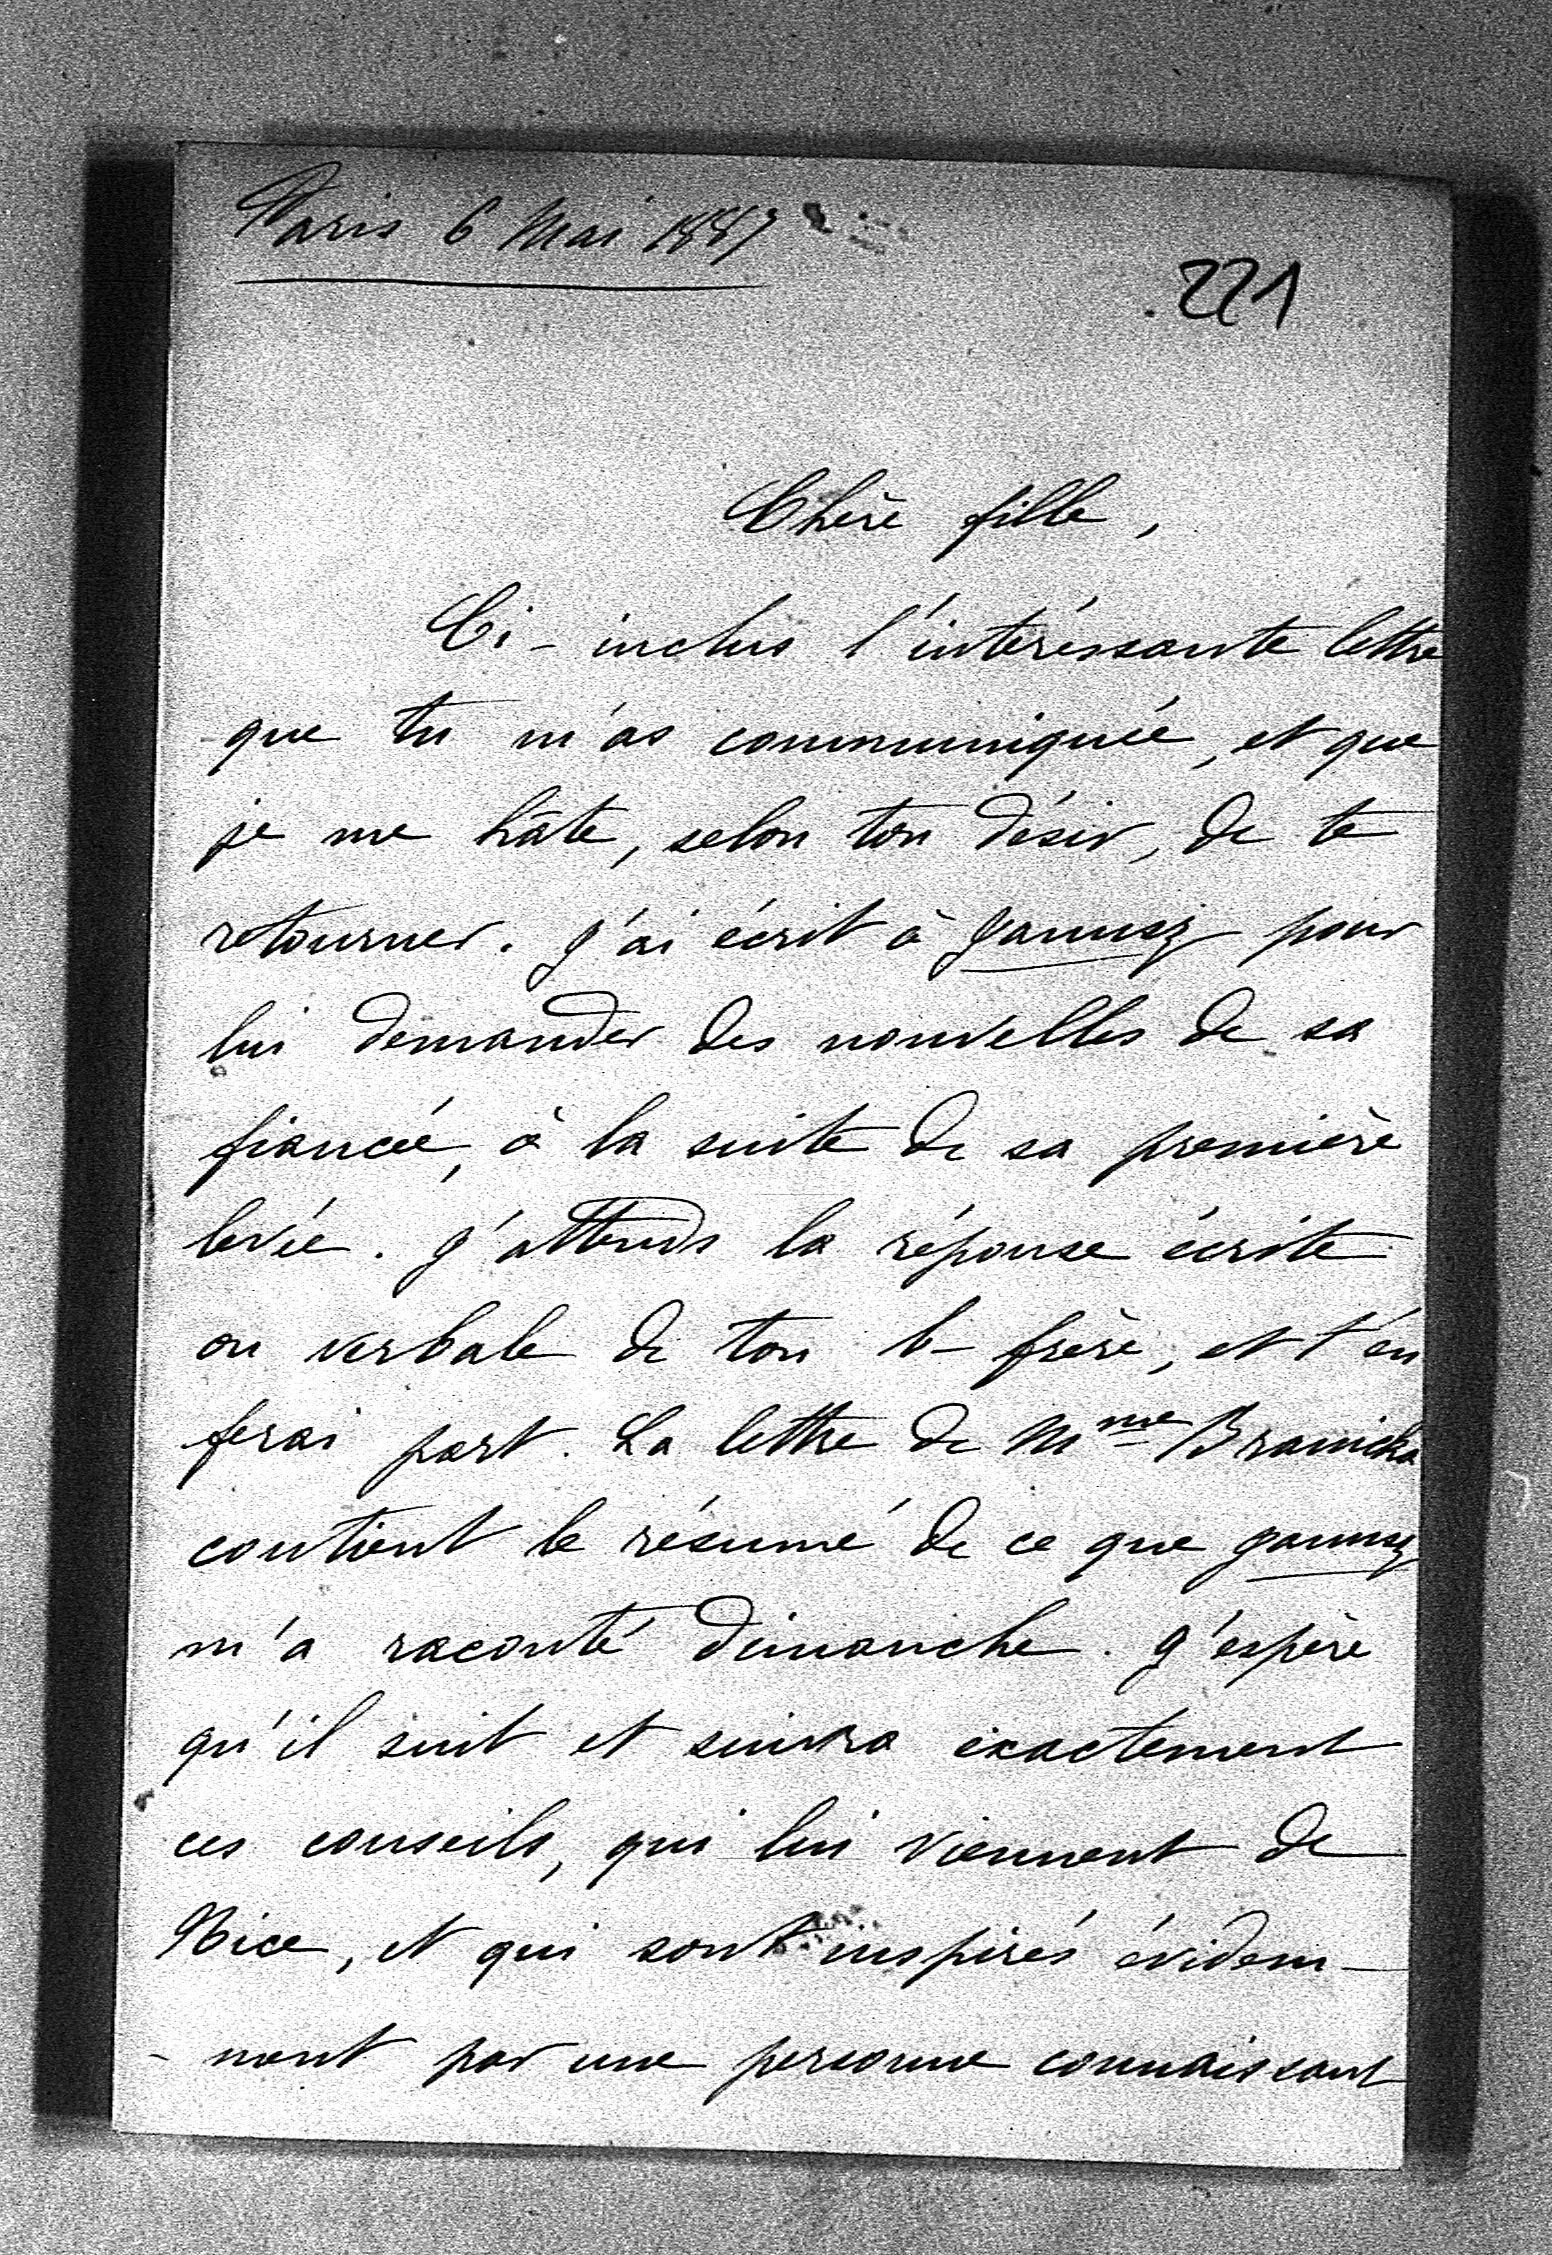 Paris 6 Mai 1887
221
Chère fille,
Ci-inclus l'intéressante lettre
que tu m'as communiquée, et que
je me hâte, selon ton désir, de te
retourner. J'ai écrit à Janusz pour
lui demander des nouvelles de sa
fiancée, à la suite de sa première
levée. J'attends la réponse écrite
ou verbale de ton b-frère, et t'en
ferai part. La lettre de Mme Branicka
contient le résumé de ce que Janusz
m'a raconté dimanche. J'espère
qu'il suit et suivra exactement
ces conseils, qui lui viennent de
Nice, et qui sont inspirés évidem-
-ment par une personne connaissant